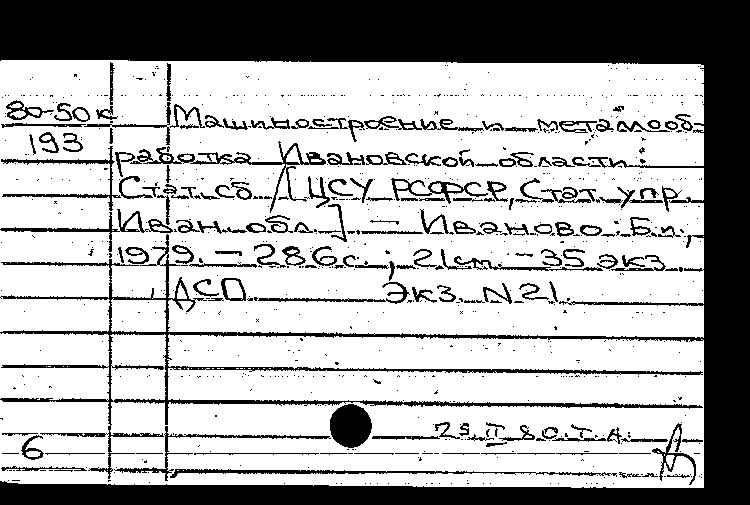 80-50к Машиностроение и металлооб-
193
работка Ивановской области:
Стат. сб / [ЦСУ РСФСР, Стат. упр.
Иван. обл.] — Иваново: Б.и.,
1979. — 286с.; 21см. — 35 экз
ДСП Экз. N21.
II 80. Т.А.
6